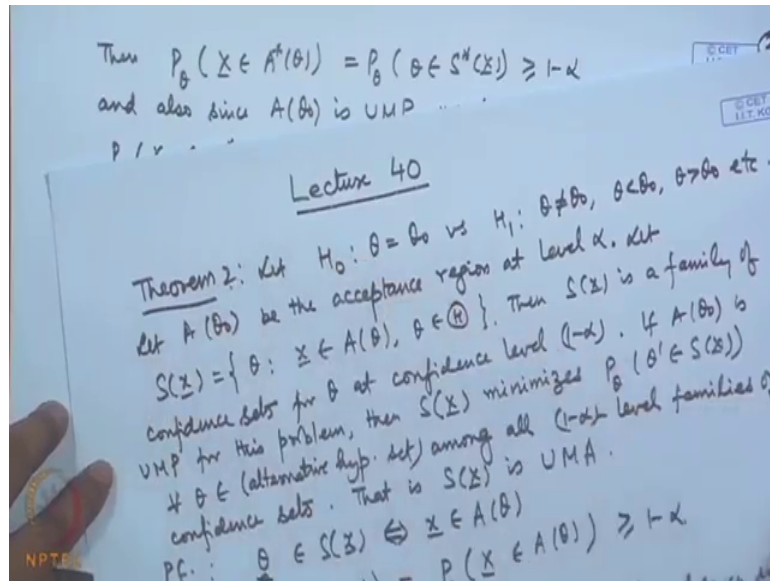 Then P_θ (X ∈ A*(θ)) = P_θ (θ ∈ S*(X)) ≥ 1-α
and also since A(θ₀) is UMP
© CET
© CET
I.I.T. KG
Lecture 40
Theorem 2: Let H₀: θ = θ₀ vs H₁: θ ≠ θ₀, θ < θ₀, θ > θ₀ etc.
Let A(θ₀) be the acceptance region at level α. Let
S(x) = { θ: x ∈ A(θ), θ ∈ Ⓗ }. Then S(x) is a family of
confidence sets for θ at confidence level (1-α). If A(θ₀) is
UMP for this problem, then S(X) minimizes P_θ (θ' ∈ S(X))
∀ θ ∈ (alternative hyp. set) among all (1-α) level families of
confidence sets. That is S(X) is UMA.
Pf.: θ ∈ S(x) ⇔ x ∈ A(θ)
= P(X ∈ A(θ)) ≥ 1-α
NPTEL